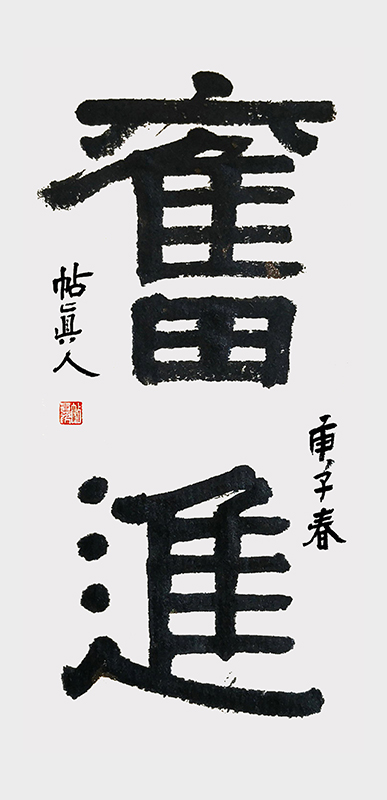 奮進
庚子春
帖真人